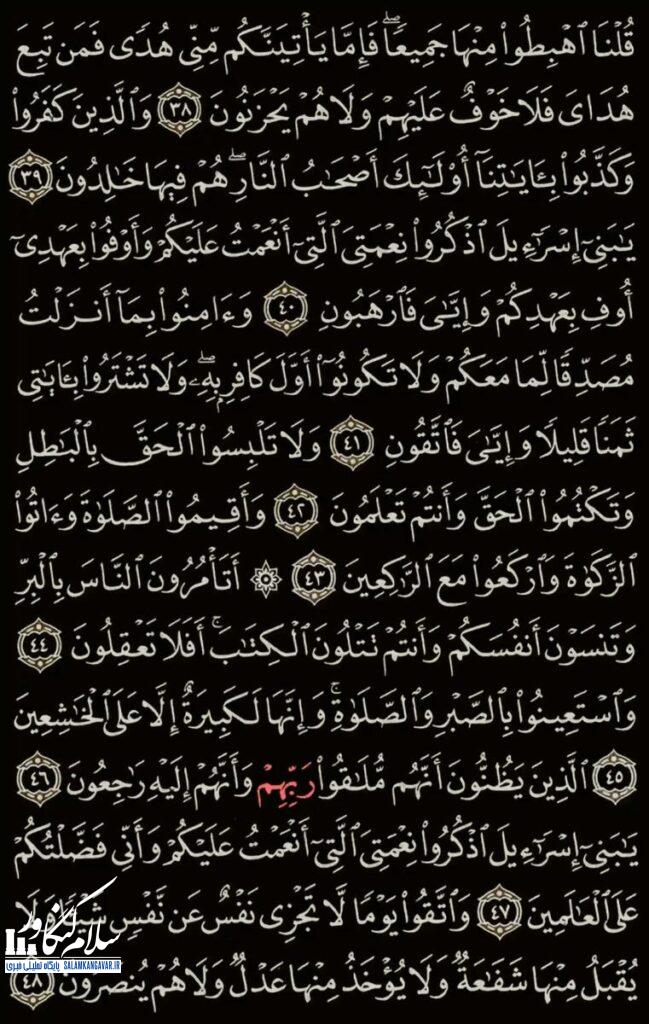 قُلْنَا ٱهْبِطُوا۟ مِنْهَا جَمِيعًۭا ۖ فَإِمَّا يَأْتِيَنَّكُم مِّنِّى هُدًۭى فَمَن تَبِعَ
هُدَاىَ فَلَا خَوْفٌ عَلَيْهِمْ وَلَا هُمْ يَحْزَنُونَ ٣٨ وَٱلَّذِينَ كَفَرُوا۟
وَكَذَّبُوا۟ بِـَٔايَـٰتِنَآ أُو۟لَـٰٓئِكَ أَصْحَـٰبُ ٱلنَّارِ ۖ هُمْ فِيهَا خَـٰلِدُونَ ٣٩
يَـٰبَنِىٓ إِسْرَٰٓءِيلَ ٱذْكُرُوا۟ نِعْمَتِىَ ٱلَّتِىٓ أَنْعَمْتُ عَلَيْكُمْ وَأَوْفُوا۟ بِعَهْدِىٓ
أُوفِ بِعَهْدِكُمْ وَإِيَّـٰىَ فَٱرْهَبُونِ ٤٠ وَءَامِنُوا۟ بِمَآ أَنزَلْتُ
مُصَدِّقًۭا لِّمَا مَعَكُمْ وَلَا تَكُونُوٓا۟ أَوَّلَ كَافِرٍۭ بِهِۦ ۖ وَلَا تَشْتَرُوا۟ بِـَٔايَـٰتِى
ثَمَنًۭا قَلِيلًۭا وَإِيَّـٰىَ فَٱتَّقُونِ ٤١ وَلَا تَلْبِسُوا۟ ٱلْحَقَّ بِٱلْبَـٰطِلِ
وَتَكْتُمُوا۟ ٱلْحَقَّ وَأَنتُمْ تَعْلَمُونَ ٤٢ وَأَقِيمُوا۟ ٱلصَّلَوٰةَ وَءَاتُوا۟
ٱلزَّكَوٰةَ وَٱرْكَعُوا۟ مَعَ ٱلرَّٰكِعِينَ ٤٣ ۞ أَتَأْمُرُونَ ٱلنَّاسَ بِٱلْبِرِّ
وَتَنسَوْنَ أَنفُسَكُمْ وَأَنتُمْ تَتْلُونَ ٱلْكِتَـٰبَ ۚ أَفَلَا تَعْقِلُونَ ٤٤
وَٱسْتَعِينُوا۟ بِٱلصَّبْرِ وَٱلصَّلَوٰةِ ۚ وَإِنَّهَا لَكَبِيرَةٌ إِلَّا عَلَى ٱلْخَـٰشِعِينَ
٤٥ ٱلَّذِينَ يَظُنُّونَ أَنَّهُم مُّلَـٰقُوا۟ رَبِّهِمْ وَأَنَّهُمْ إِلَيْهِ رَٰجِعُونَ ٤٦
يَـٰبَنِىٓ إِسْرَٰٓءِيلَ ٱذْكُرُوا۟ نِعْمَتِىَ ٱلَّتِىٓ أَنْعَمْتُ عَلَيْكُمْ وَأَنِّى فَضَّلْتُكُمْ
عَلَى ٱلْعَـٰلَمِينَ ٤٧ وَٱتَّقُوا۟ يَوْمًۭا لَّا تَجْزِى نَفْسٌ عَن نَّفْسٍۢ شَيْـًۭٔا وَلَا
يُقْبَلُ مِنْهَا شَفَـٰعَةٌۭ وَلَا يُؤْخَذُ مِنْهَا عَدْلٌۭ وَلَا هُمْ يُنصَرُونَ ٤٨
سلام کنگاور
پایگاه تحلیلی خبری SALAMKANGAVAR.IR